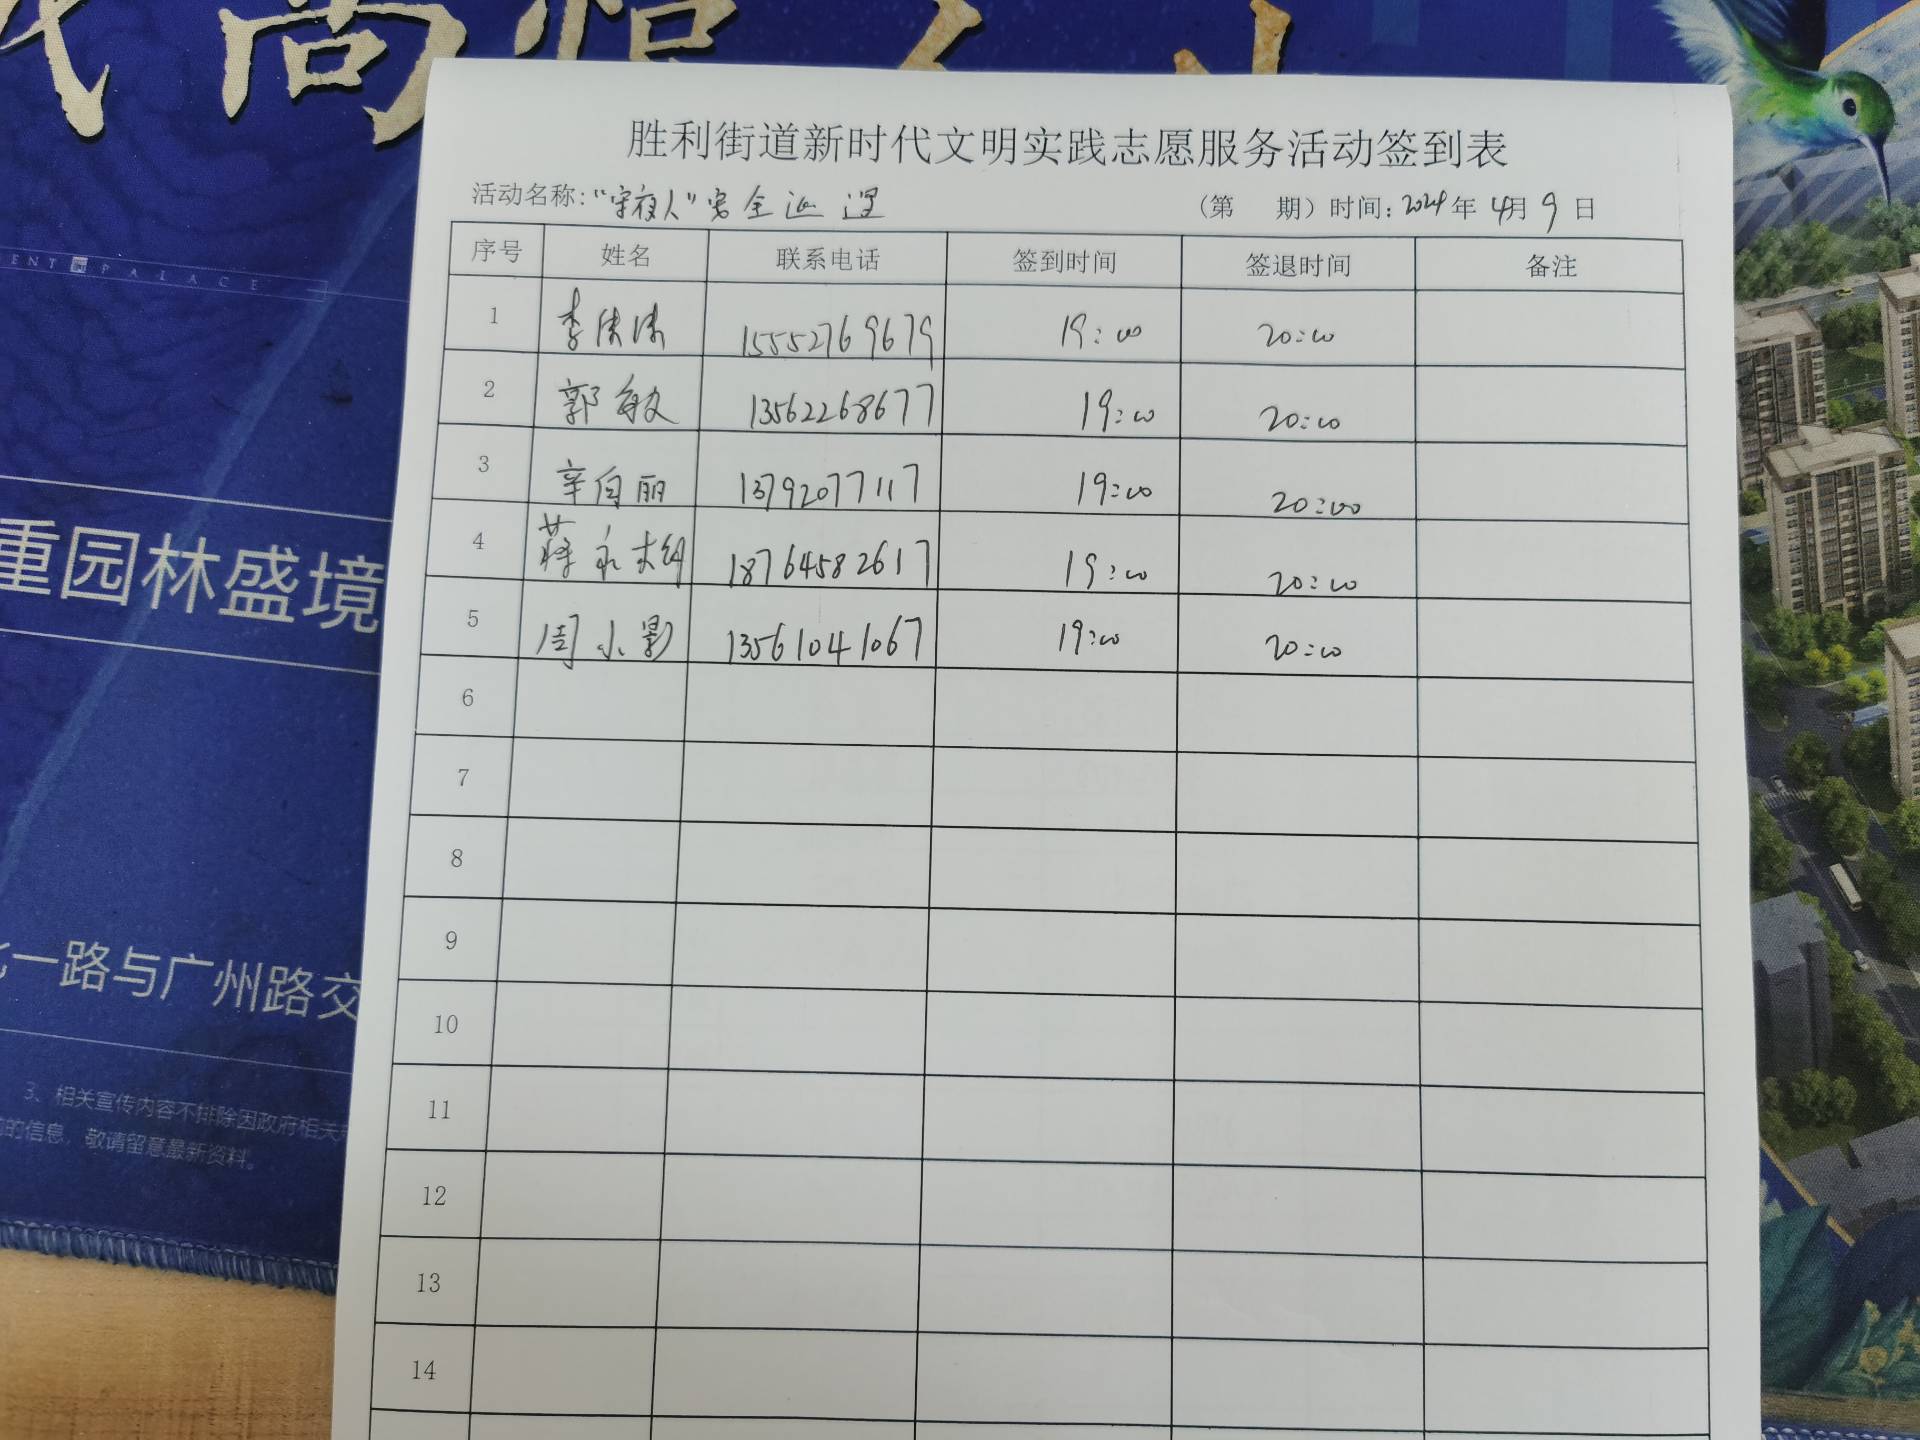 胜利街道新时代文明实践志愿服务活动签到表
活动名称:“守夜人”安全巡逻 (第 期) 时间: 2024年 4月 9 日
序号 姓名 联系电话 签到时间 签退时间 备注
1 李 15552769679 19:00 20:00
2 郭敏 13562268677 19:00 20:00
3 辛向丽 13792077117 19:00 20:00
4 蒋永 18764582617 19:00 20:00
5 周小影 13561041067 19:00 20:00
6
7
8
9
10
11
12
13
14
ENT PALACE
重园林盛境
一路与广州路交
3、相关宣传内容不排除因政府相关
的信息，敬请留意最新资料。